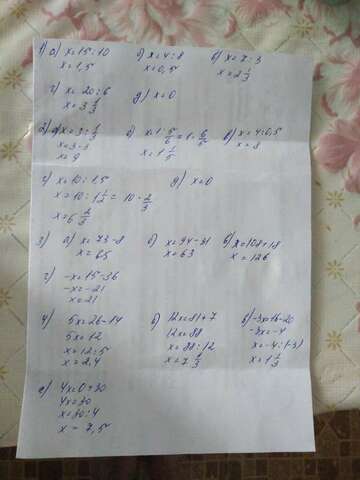 1) а) x=15:10 б) x=4:8 в) x=7:3
x=1,5 x=0,5 x=2 1/3
г) x=20:6 д) x=0
x=3 1/3
2) а) x=3:1/3 б) x=1:5/6=1·6/5 в) x=4:0,5
x=3·3 x=1 1/5 x=8
x=9
г) x=10:1,5 д) x=0
x=10:1 1/2=10·2/3
x=6 2/3
3) а) x=73-8 б) x=94-31 в) x=108+18
x=65 x=63 x=126
г) -x=15-36
-x=-21
x=21
4) 5x=26-14 б) 12x=81+7 в) -3x=16-20
5x=12 12x=88 -3x=-4
x=12:5 x=88:12 x=-4:(-3)
x=2,4 x=7 1/3 x=1 1/3
4x=0+30
4x=30
x=30:4
x=7,5